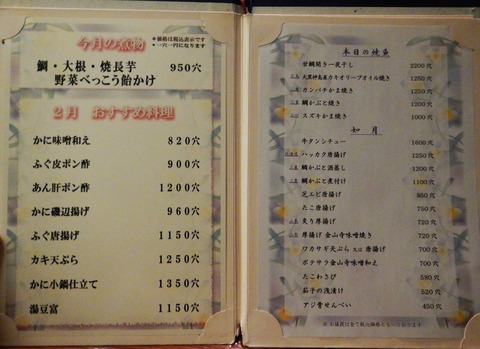 今月の煮物
＊価格は税込表示です
＊一穴一円になります
鯛・大根・焼長芋 950穴
野菜べっこう飴かけ
2月 おすすめ料理
かに味噌和え 820穴
ふぐ皮ポン酢 900穴
あん肝ポン酢 1200穴
かに磯辺揚げ 960穴
ふぐ唐揚げ 1150穴
カキ天ぷら 1250穴
かに小鍋仕立て 1350穴
湯豆富 1150穴
本日の焼魚
甘鯛開き一夜干し 2200穴
大黒神島産カキオリーブオイル焼き 1250穴
カンパチかま焼き 1250穴
鯛かぶと焼き 1200穴
スズキかま焼き 1000穴
如月
牛タンシチュー 1600穴
ハッカク唐揚げ 1250穴
鯛かぶと酒蒸し 1200穴
鯛かぶと煮付け 1100穴
芝エビ唐揚げ 850穴
たこ唐揚げ 750穴
炙り厚揚げ 720穴
厚揚げ 金山寺味噌焼き 720穴
ワカサギ天ぷら 又は 唐揚げ 700穴
ポテサラ金山寺味噌和え 700穴
たこわさび 580穴
茄子の浅漬け 520穴
アジ骨せんべい 450穴